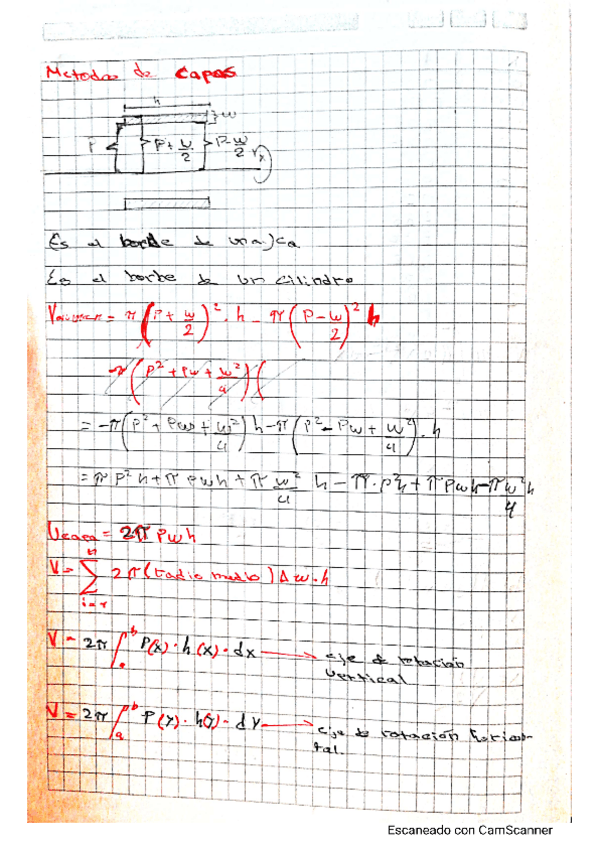 Metodos de capas
h
w
P P + w/2 P - w/2
Es el borde de
Es el borbe de un cilindro
Volumen = π(P + w/2)² · h - π(P - w/2)² h
π(P² + Pw + w²/4)(
= π(P² + Pw + w²/4) h - π(P² - Pw + w²/4) · h
= π P² h + π P w h + π w²/4 h - π · P² h + π P w h - π w² h/4
Vcapa = 2π P w h
n
V = Σ 2π (radio medio) Δ w · h
i=1
V = 2π ∫ᵇₐ P(x) · h(x) · dx → eje de rotación
vertical
V = 2π ∫ᵇₐ P(y) · h(y) · dy → eje de rotación horizon-
tal.
Escaneado con CamScanner